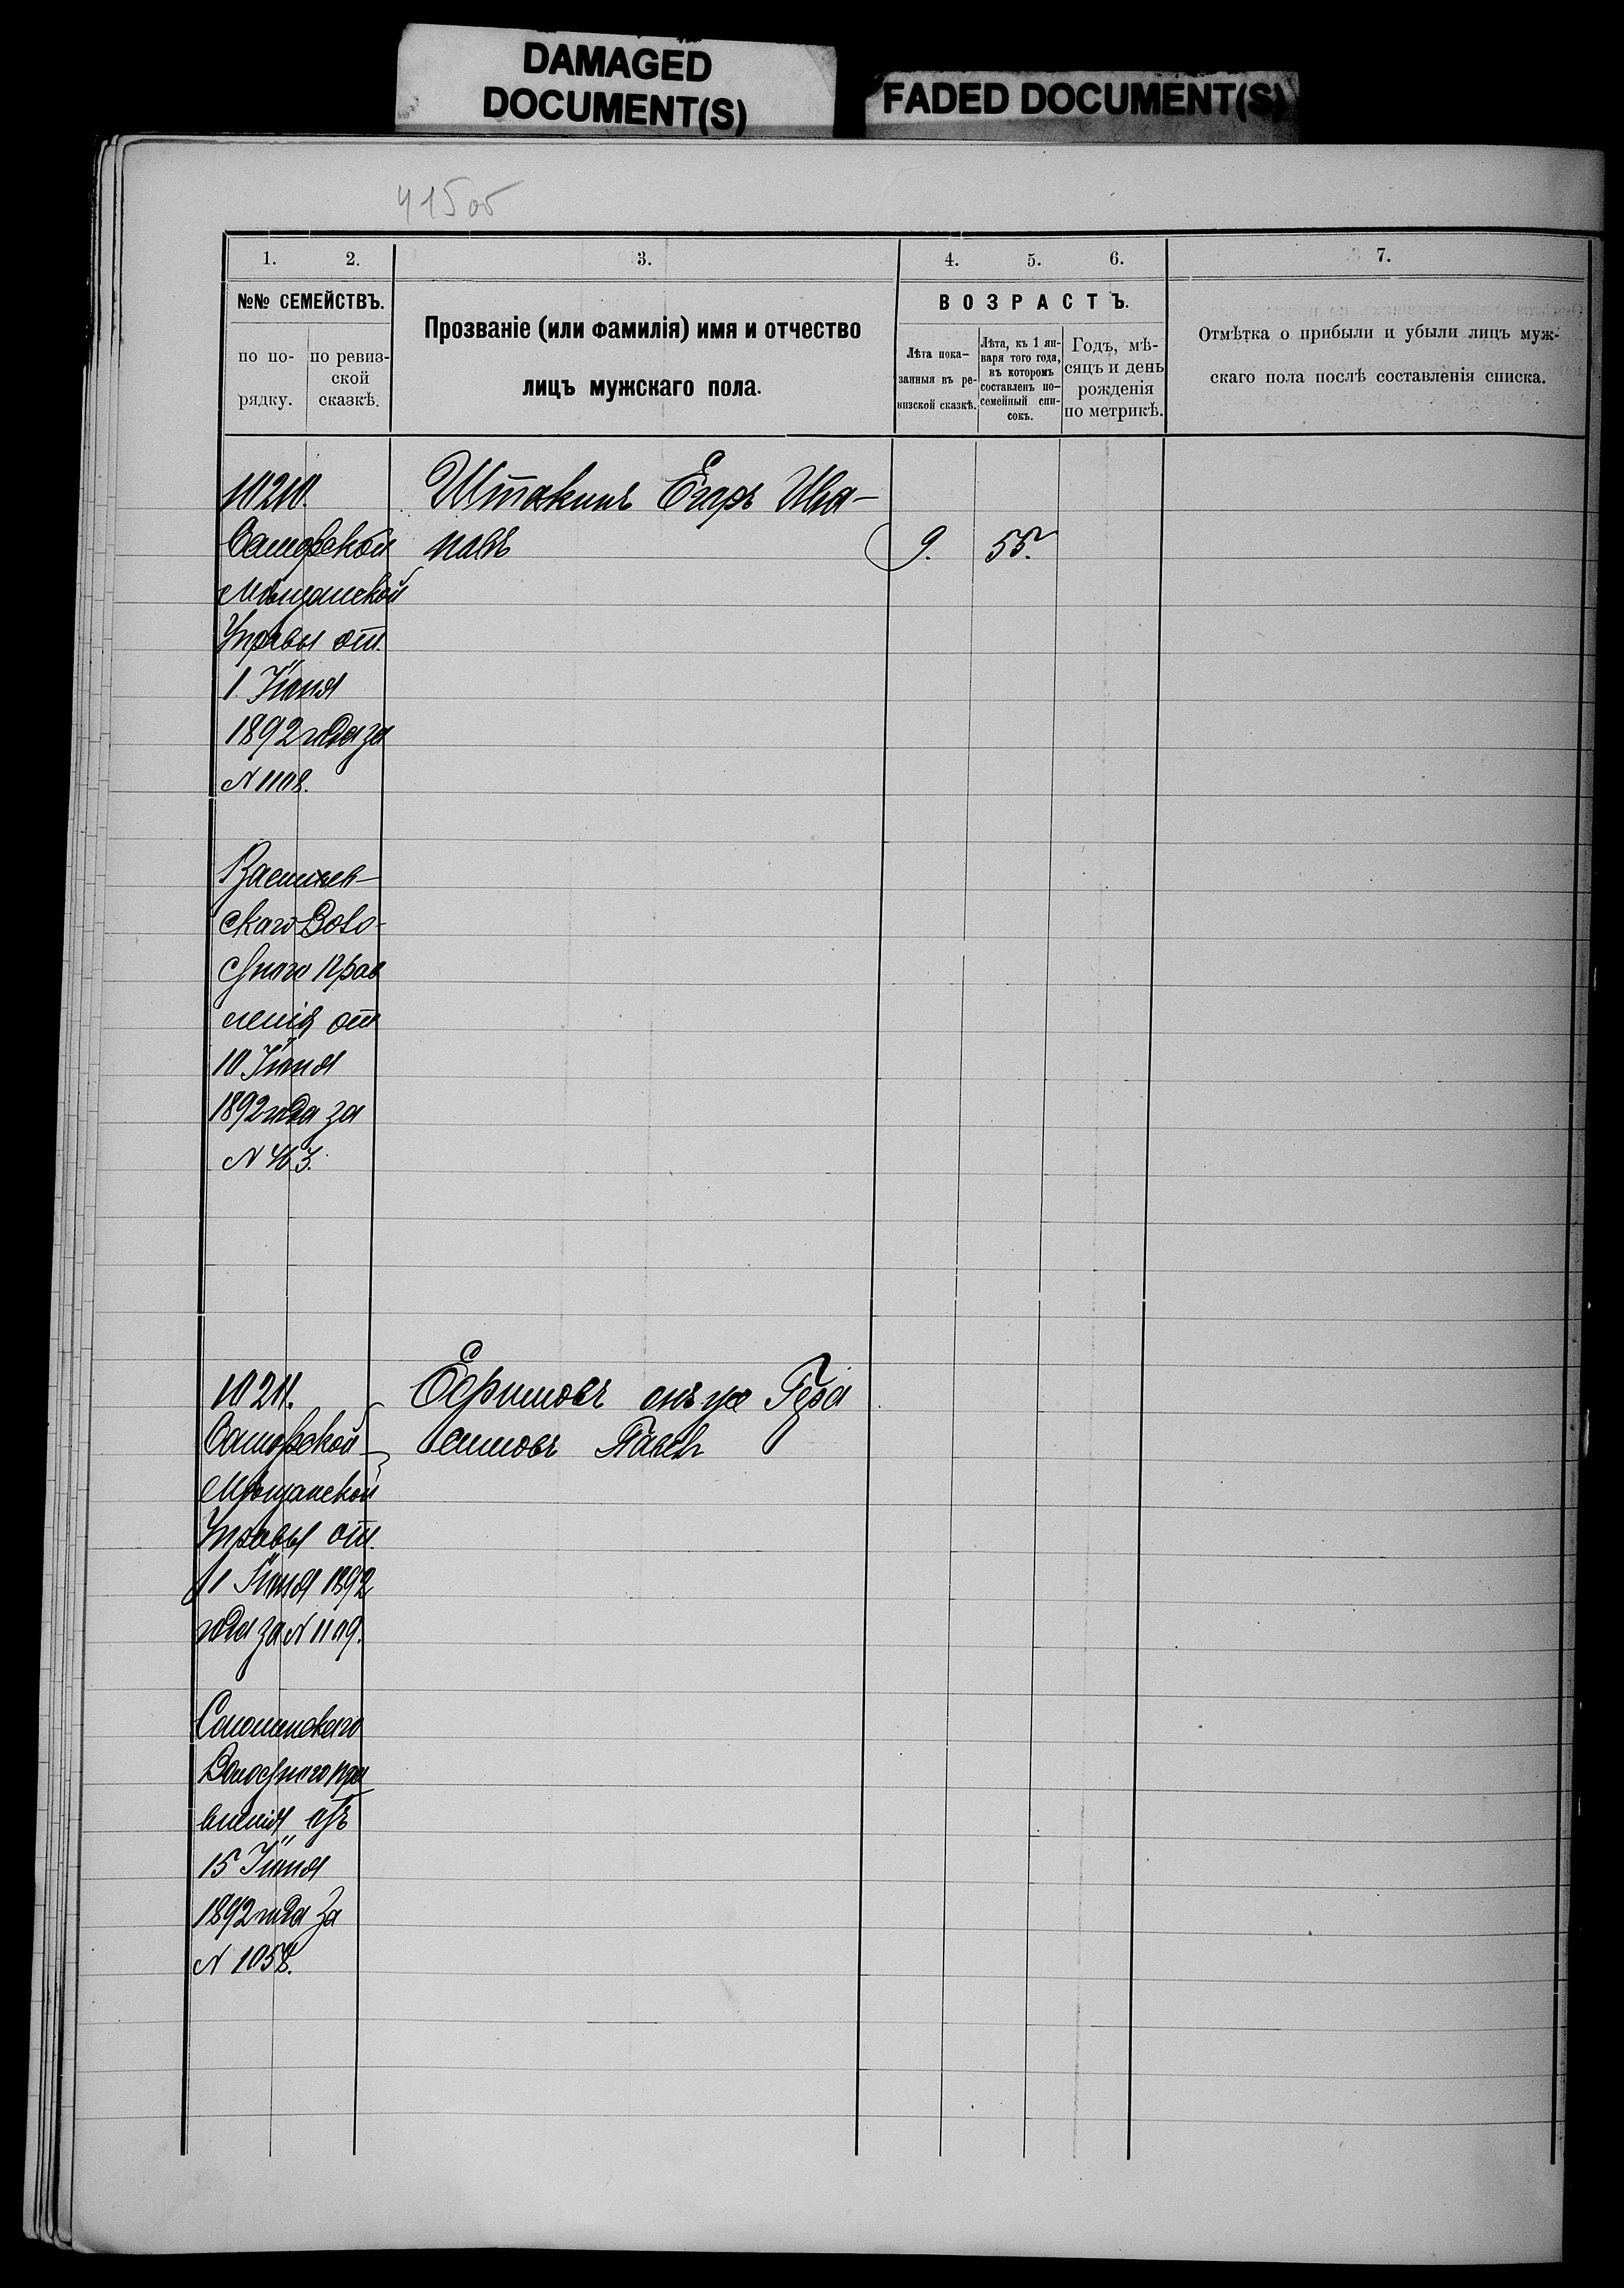 DAMAGED
DOCUMENT(S)
FADED DOCUMENT(S)
415 об
1. 2. 3. 4. 5. 6. 7.
№№ СЕМЕЙСТВЪ.
по по-
рядку.
по ревиз-
ской
сказкѣ.
Прозваніе (или фамилія) имя и отчество
лицъ мужскаго пола.
ВОЗРАСТЪ.
Лѣта пока-
занныя въ ре-
визской сказкѣ.
Лѣта, къ 1 ян-
варя того года,
въ которомъ
составленъ по-
семейный спи-
сокъ.
Годъ, мѣ-
сяцъ и день
рожденія
по метрикѣ.
Отмѣтка о прибыли и убыли лицъ муж-
скаго пола послѣ составленія списка.
10210. Егоръ Ива-
Самарской новъ 9. 55.
Мѣщанской
Управы от.
1 Іюня
1892 года за
N 1108.
скаго Воло-
стного Прав
ленія от
10 Іюня
1892 года за
N 463.
10211. Гера
Самарской симовъ Павелъ
Мѣщанской
Управы от.
1 Іюня 1892
года за N 1109.
Волостного пра
вленія отъ
15 Іюня
1892 года за
N 1058.